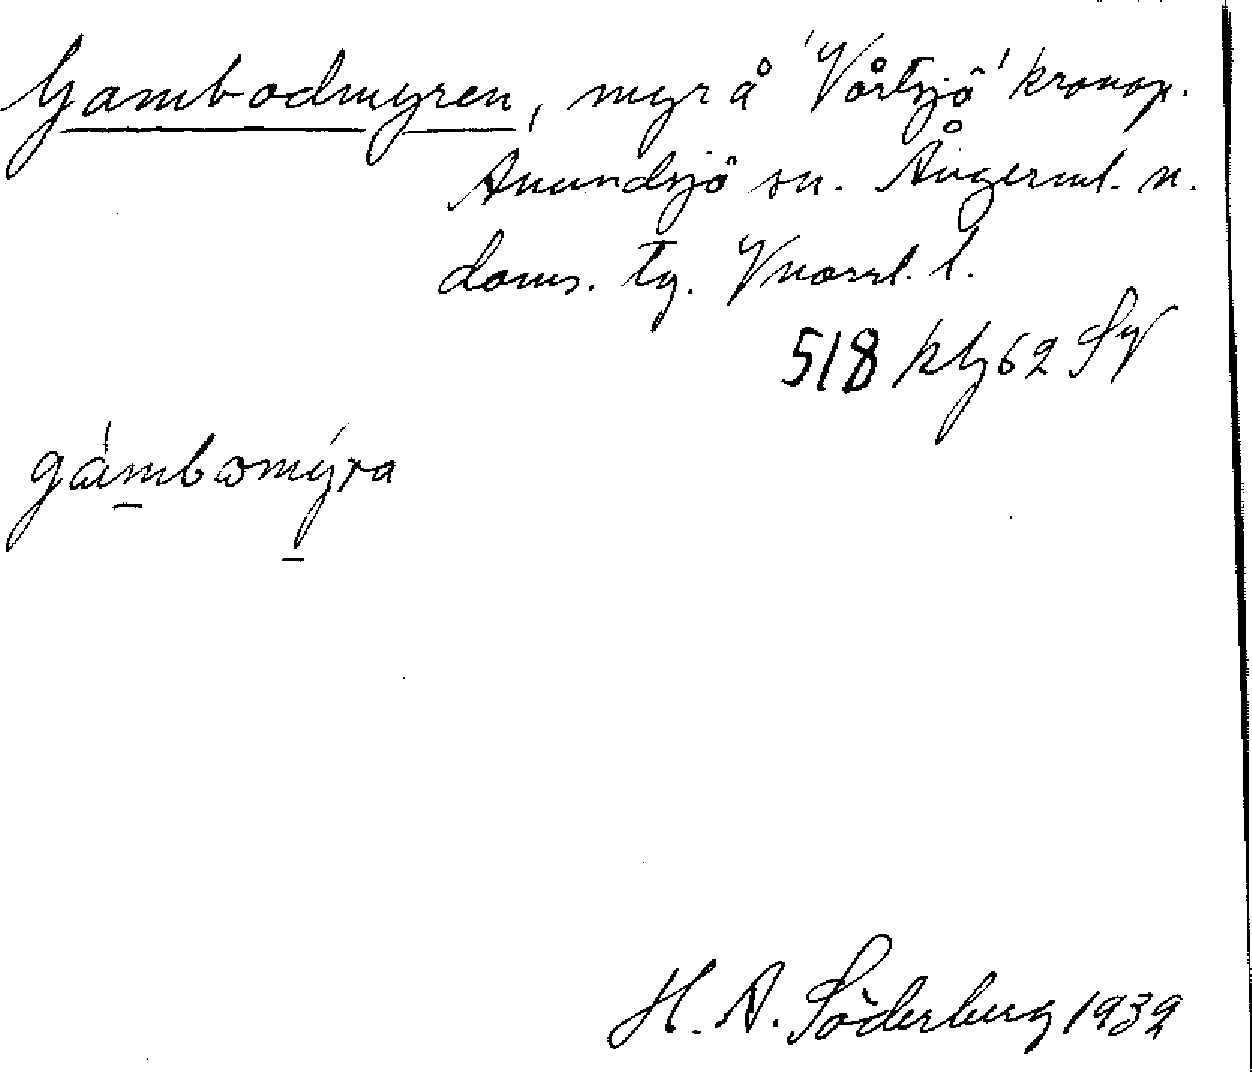 Gambodmyren, myr å 'Vårtsjö' kronop.
Anundsjö sn. Ångerml. n.
doms. tg. Vnorrl. l.
518 ktg 62 SV
gámbomýra
H. A. Söderberg 1939